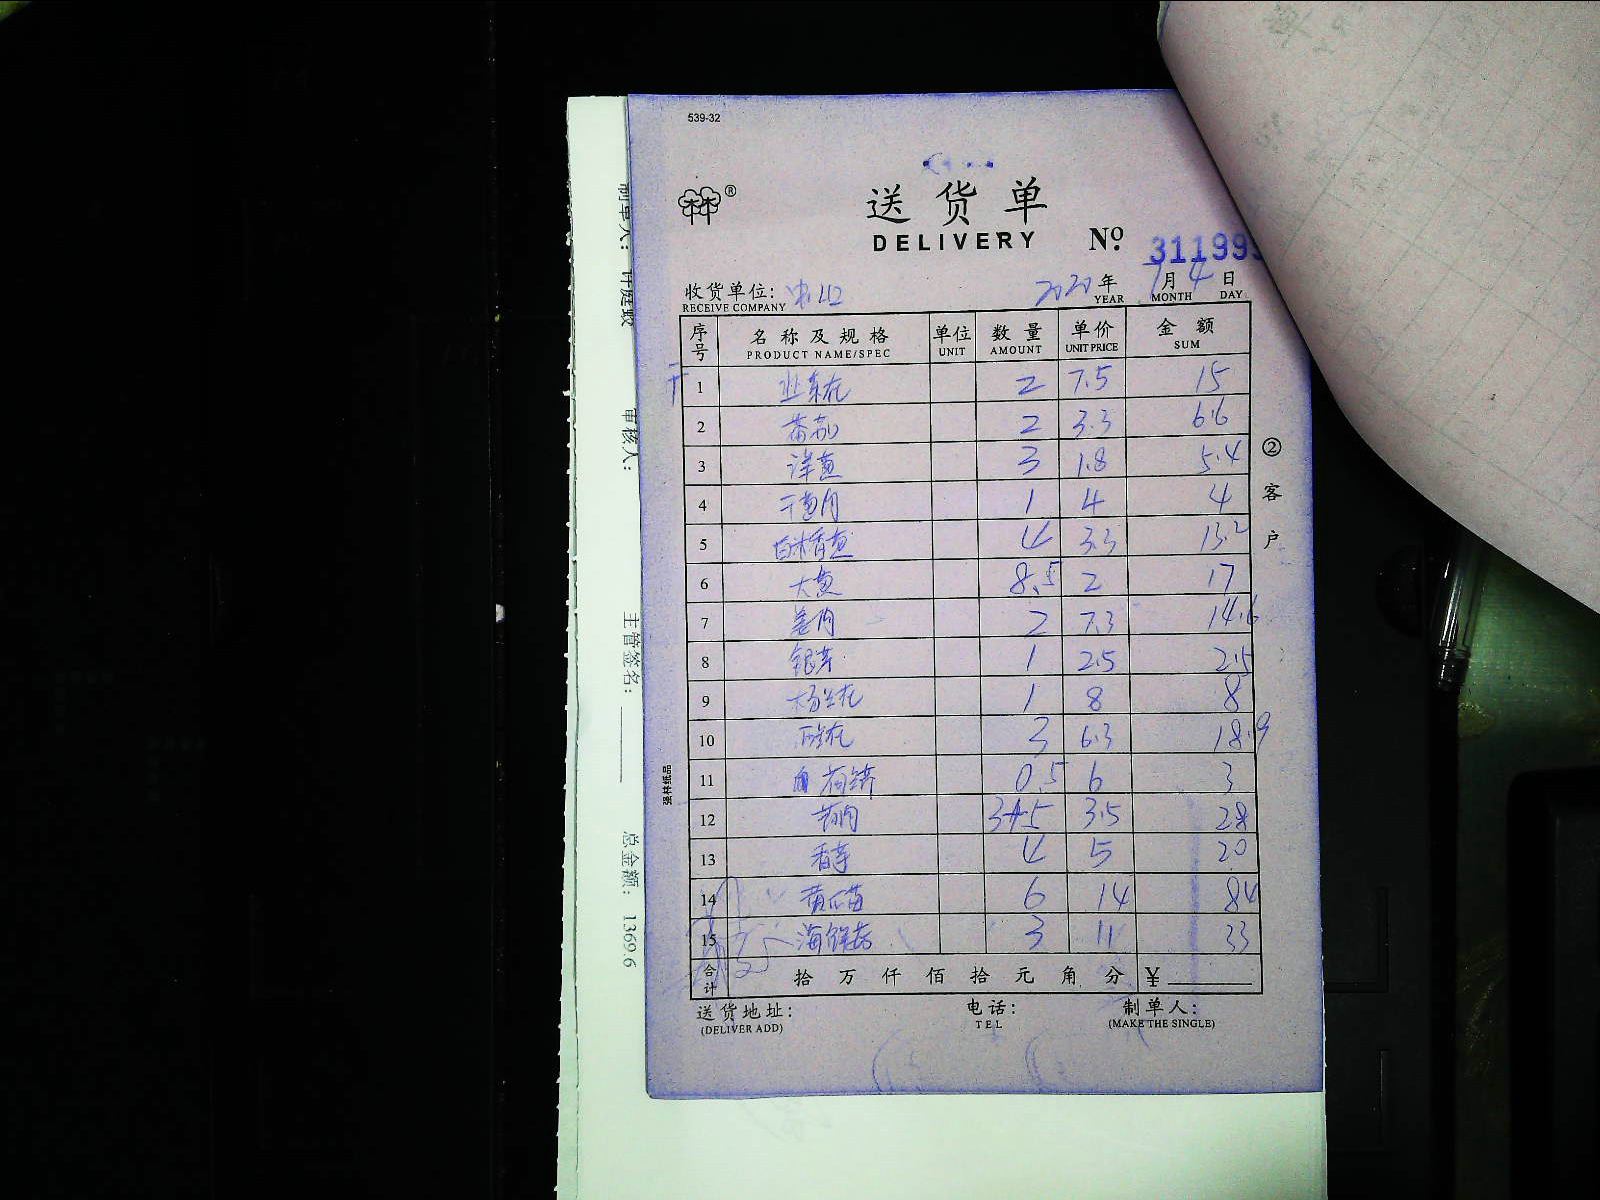 539-32
送货单
DELIVERY Nº 31199
收货单位: 2020年 7月 4日
RECEIVE COMPANY YEAR MONTH DAY
序号 名称及规格 单位 数量 单价 金额
PRODUCT NAME/SPEC UNIT AMOUNT UNIT PRICE SUM
1 2 7.5 15
2 蕃茄 2 3.3 6.6
3 洋葱 3 1.8 5.4
4 干葱肉 1 4 4
5 4 3.3 13.2
6 大葱 8.5 2 17
7 姜肉 2 7.3 14.6
8 银芽 1 2.5 2.5
9 1 8 8
10 3 6.3 18.9
11 0.5 6 3
12 3+5 3.5 28
13 香芹 4 5 20
14 黄瓜苗 6 14 84
15 海鲜菇 3 11 33
合计 拾万仟佰拾元角分 ¥
送货地址: 电话: 制单人:
(DELIVER ADD) TEL (MAKE THE SINGLE)
②客户
强林纸品
制单人: 许庭蛟
审核人:
主管签名:
总金额: 1369.6